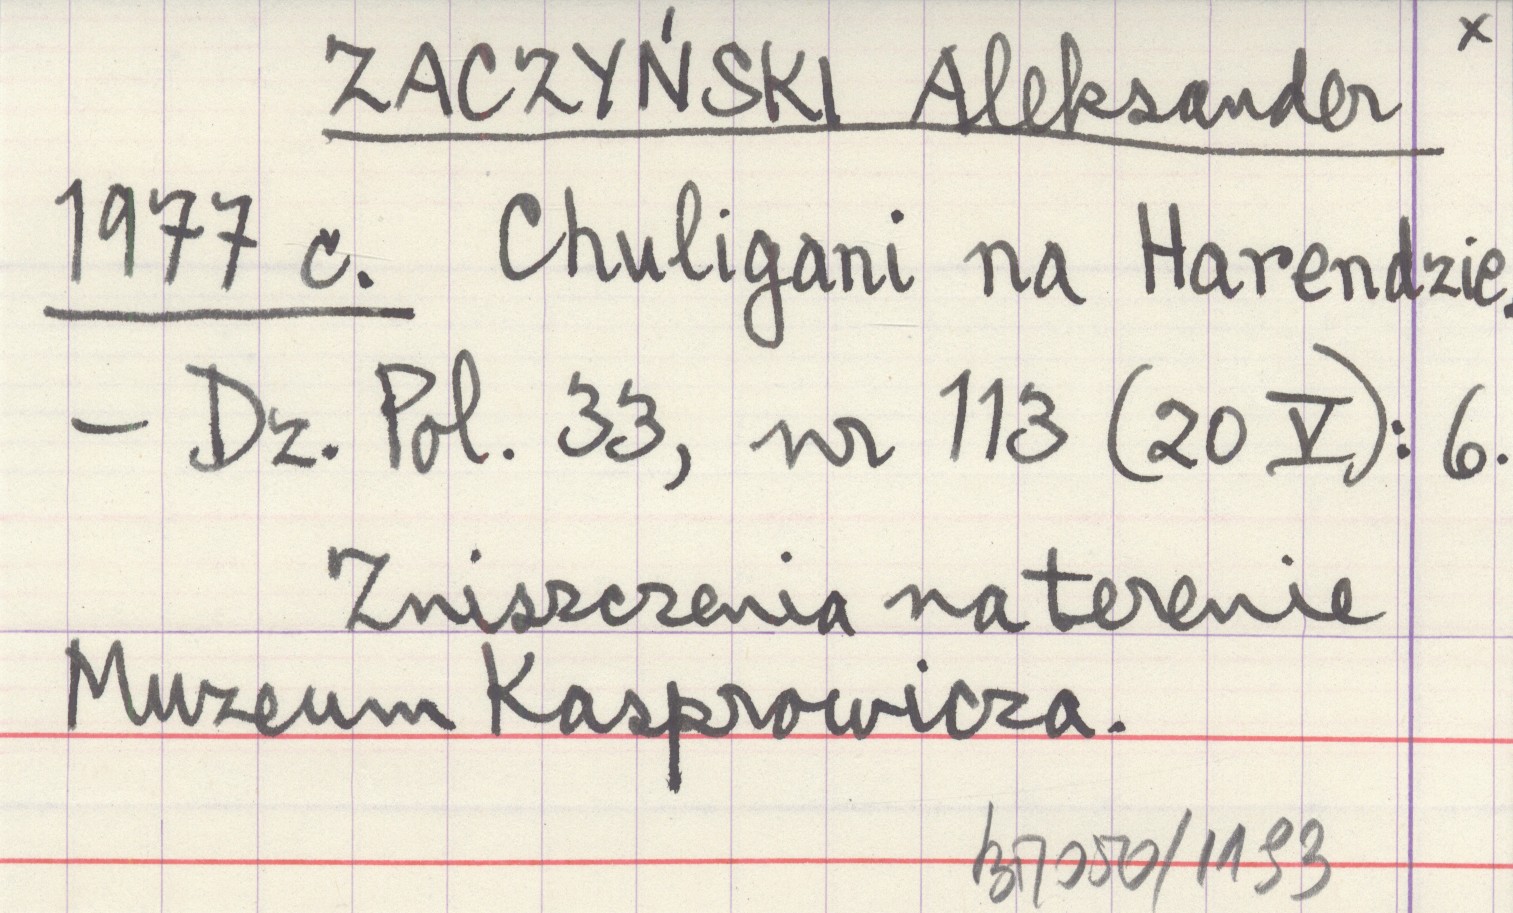 x
ZACZYŃSKI Aleksander
1977 c. Chuligani na Harendzie.
– Dz. Pol. 33, nr 113 (20 V): 6.
Zniszczenia na terenie
Muzeum Kasprowicza.